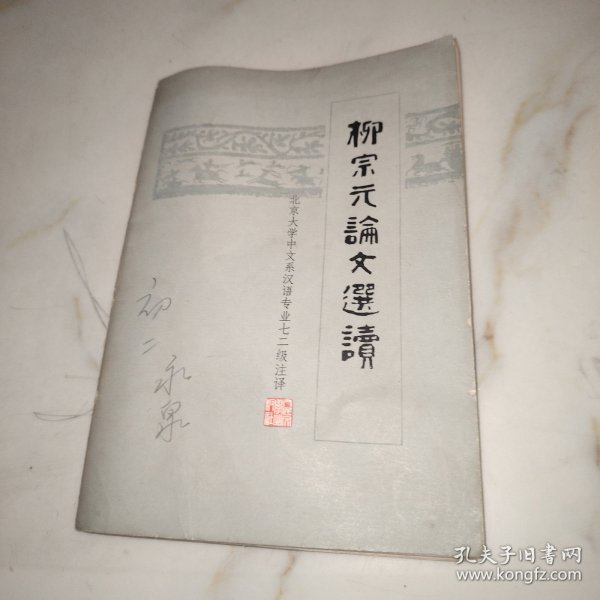 柳宗元論文選讀
北京大学中文系汉语专业七二级注译
初二
永泉
孔夫子旧书网
www.kongfz.com